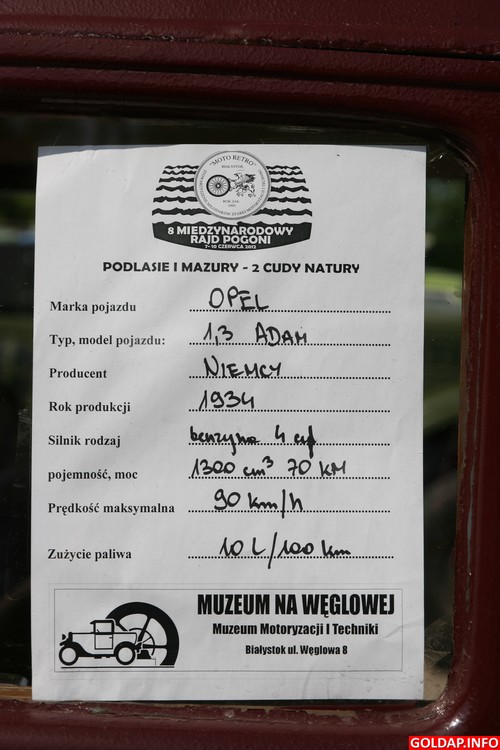 "MOTO RETRO"
BIAŁYSTOK
8 MIĘDZYNARODOWY
RAJD POGONI
7-10 CZERWCA 2012
PODLASIE I MAZURY - 2 CUDY NATURY
Marka pojazdu OPEL
Typ, model pojazdu: 1,3 ADAM
Producent NIEMCY
Rok produkcji 1934
Silnik rodzaj benzyna 4 cyl
pojemność, moc 1300 cm³ 70 KM
Prędkość maksymalna 90 km/h
Zużycie paliwa 10 L/100 km
MUZEUM NA WĘGLOWEJ
Muzeum Motoryzacji I Techniki
Białystok ul. Węglowa 8
GOLDAP.INFO